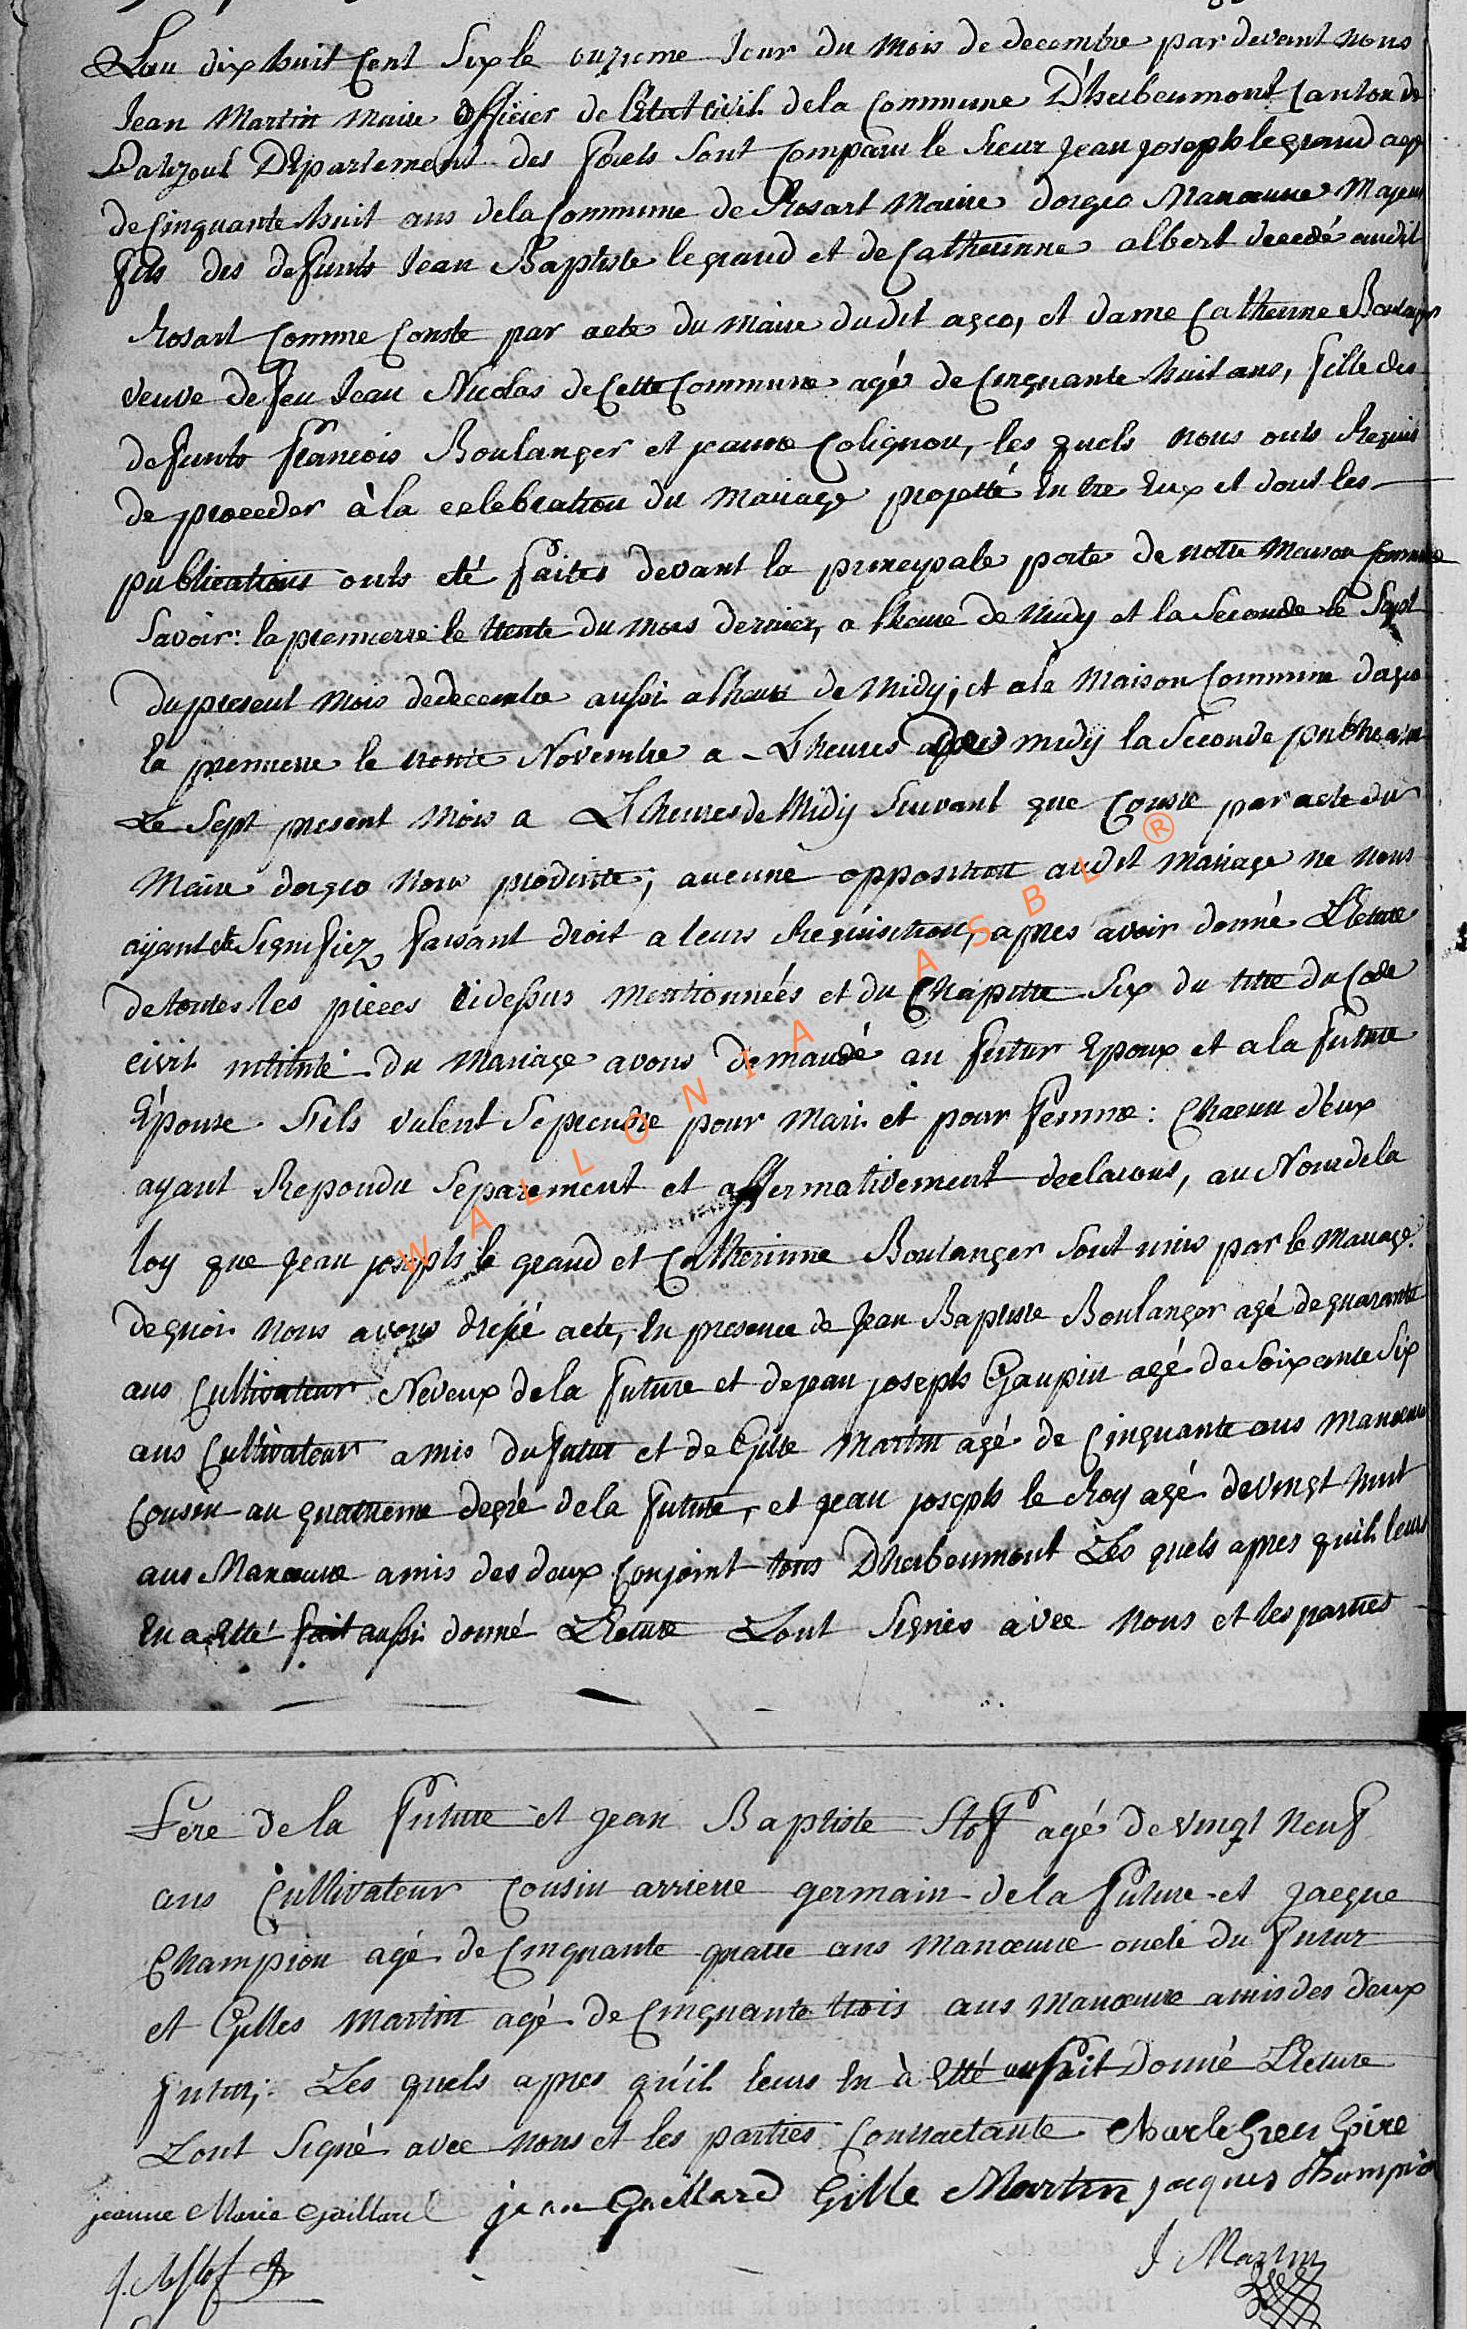 L'an dix huit Cent Six le onzieme Jour du Mois de decembre par devant Nous
Jean Martin Maire officier de l'Etat Civil dela Commune D'herbeumont Canton de
Palizeul Département des forets Sont Comparu le Sieur Jean joseph le grand agé
de Cinquante huit ans dela Commune de Rosart Mairie dorgeo Manœuvre Majeur
fils des defunts Jean Baptiste le grand et de Catherinne albert decedé audit
Rosart Comme Conste par acte du Maire dudit ageo, et dame Catherinne Boulanger
veuve de feu Jean Nicolas de Cette Commune agé de Cinquante huit ans, fille des
defunts François Boulanger et jeanne Colignon, les quels nous onts Requis
de proceder à la celebration du Mariage projetté Entre Eux et dont les
publications onts eté faites devant la princypale porte de notre Maison Commune
Savoir: la premierre le trente du Mois dernier, a lheure de Midy et la Seconde le Sept
du present Mois de decembre aussi a lheure de Midy; et a la Maison Commune dageo
la premierre le trente Novembre a L'heures apres midy la Seconde publication
Le Sept present Mois a L'heures de Midy Suivant que Conste par acte du
Maire dorgeo Nous produitte; aucune opposition audit Mariage ne nous
ayant eté Signifiez faisant droit a leurs Requisition, apres avoir donné Lecture
de toutes les pièces Cidessus Mentionnées et du Chapitre Six du titre du Code
civil intitulé du Mariage avons demandé au futur Epoux et a la future
Épouse S'ils vulent Se prendre pour Mari et pour femme: Chacun d'eux
ayant Repondu Separement et affermativement declarons, au Nom de la
loy que Jean joseph le grand et Catherinne Boulanger Sont unis par le Mariage
de quoi nous avons dressé acte, En presence de Jean Baptiste Boulanger agé de quarante
ans Cultivateur Neveux de la future et de jean joseph Gaupin agé de Soixante Six
ans Cultivateur amis du futur et de Gille Martin agé de Cinquante ans Manœuvre
Cousin au quatrieme degré de la future, et jean joseph le Roy agé de vingt huit
ans Manœuvre amis des deux Conjoint tous D'herbeumont Les quels apres quil leurs
En a Etté fait aussi donné Lecture Lont Signés avec nous et les parties
Fere de la future et jean Baptiste Stof agé de vingt neuf
ans Cultivateur Cousin arriere germain de la future et Jacque
Champion agé de Cinquante quatre ans Manœuvre oncle du futur
et Gilles Martin agé de Cinquante trois ans Manœuvre amis des deux
futur; Les quels apres qu'il leurs En à Etté aussi fait Donné Lecture
Lont Signé avec nous et les parties Contractante Charle Gregoire
jeanne Marie Gaillard jean Gaillard Gille Martin jacques Champion
J Martin
WALLONIA ASBL ®